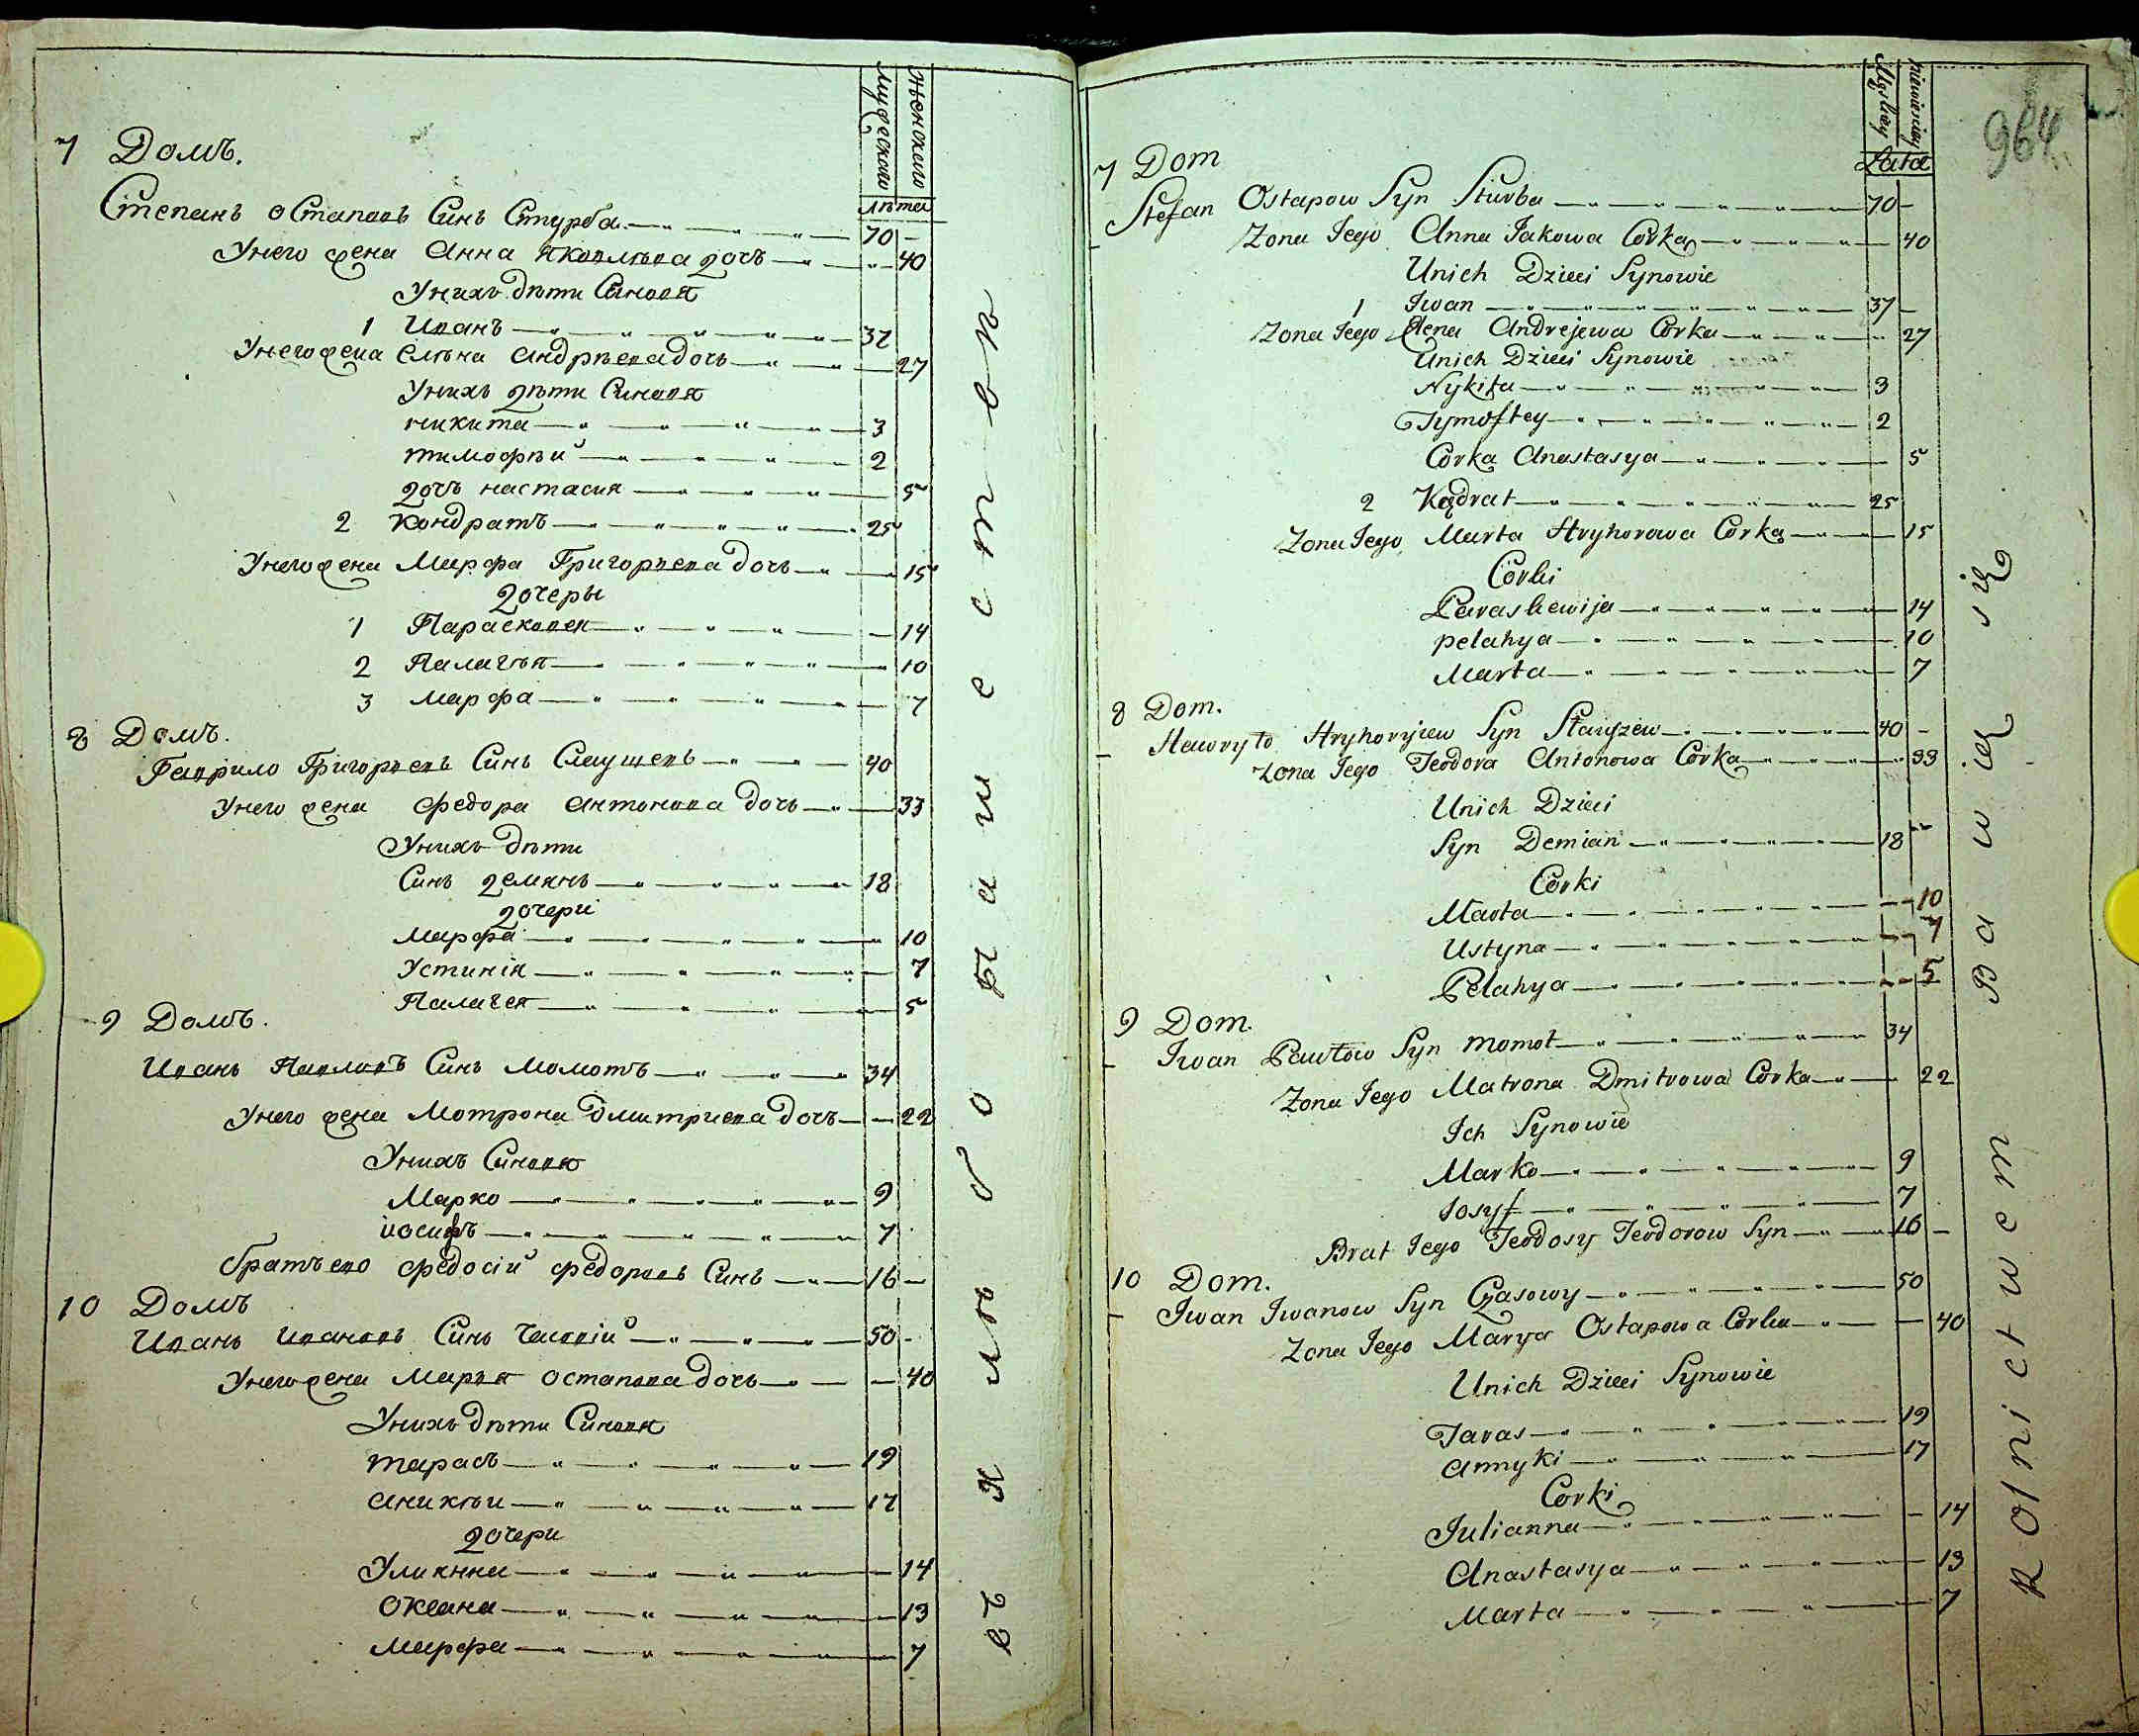 мужеского
женского
лѣта
7 Домъ.
Степанъ Остаповъ Синъ Стурба 70
Унего жена Анна Яковлѣва дочь 40
Унихъ дѣти Синовя
1 Иванъ 37
Унего жена Елѣна Андрѣева дочь 27
Унихъ дѣти Синовя
никита 3
тимофѣй 2
дочь настасия 5
2 Кондратъ 25
Унего жена Марфа Григорѣева дочь 15
дочеры
1 Парасковея 14
2 Палагѣя 10
3 Марфа 7
8 Домъ.
Гаврило Григорѣевъ Синъ 40
Унего жена Федора Антонова дочь 33
Унихъ дѣти
Синъ демянъ 18
дочері
Марфа 10
Устинія 7
Палагея 5
9 Домъ.
Иванъ Павловъ Синъ Момотъ 34
Унего жена Мотрона Дмитриева дочь 22
Унихъ Синовя
Марко 9
иосифъ 7
братъ его Федосій Федоровъ Синъ 16
10 Домъ
Иванъ Ивановъ Синъ Часовій 50
Унего жена Марья Остапова дочь 40
Унихъ дѣти Синовя
тарасъ 19
аникѣи 17
дочери
Улиянна 14
Оксана 13
Марфа 7
хлѣбопашеством
964
Męskiey
niewiesciey
Lata
7 Dom
Stefan Ostapow Syn Sturba 70
Zona Jego Anna Jakowa Corka 40
Unich Dzieci Synowie
1 Iwan 37
Zona Jego Elena Andrejewa Corka 27
Unich Dzieci Synowie
Nykita 3
Tymoftey 2
Corka Anastasya 5
2 Kądrat 25
Zona Jego Marta Hryhorowa Corka 15
Corki
Paraskewija 14
pelahya 10
Marta 7
8 Dom.
Hawryło Hryhoryiew Syn 40
Zona Jego Teodora Antonowa Corka 33
Unich Dzieci
Syn Demian 18
Corki
Marta 10
Ustyna 7
Pelahya 5
9 Dom.
Iwan Pawłow Syn momot 34
Zona Jego Matrona Dmitrowa Corka 22
Ich Synowie
Marko 9
Josyf 7
Brat Jego Teodosy Teodorow Syn 16
10 Dom.
Iwan Iwanow Syn Czasowy 50
Zona Jego Marya Ostapowa Corka 40
Unich Dzieci Synowie
Taras 19
Annyki 17
Corki
Julianna 14
Anastasya 13
Marta 7
Rolnictwem Bawią się